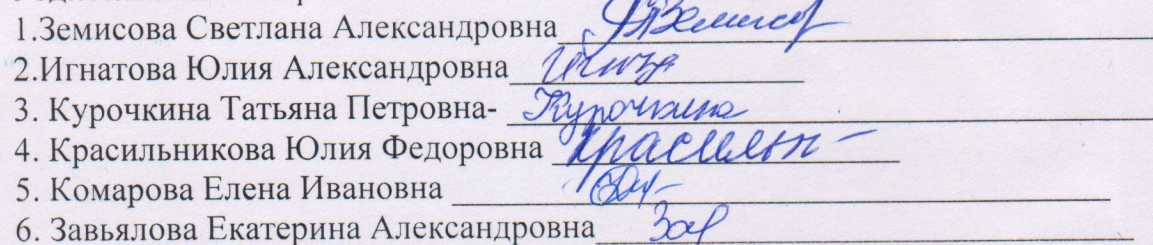 1.Земисова Светлана Александровна Земисов
2.Игнатова Юлия Александровна
3. Курочкина Татьяна Петровна- Курочкина
4. Красильникова Юлия Федоровна Красильн-
5. Комарова Елена Ивановна
6. Завьялова Екатерина Александровна Зав